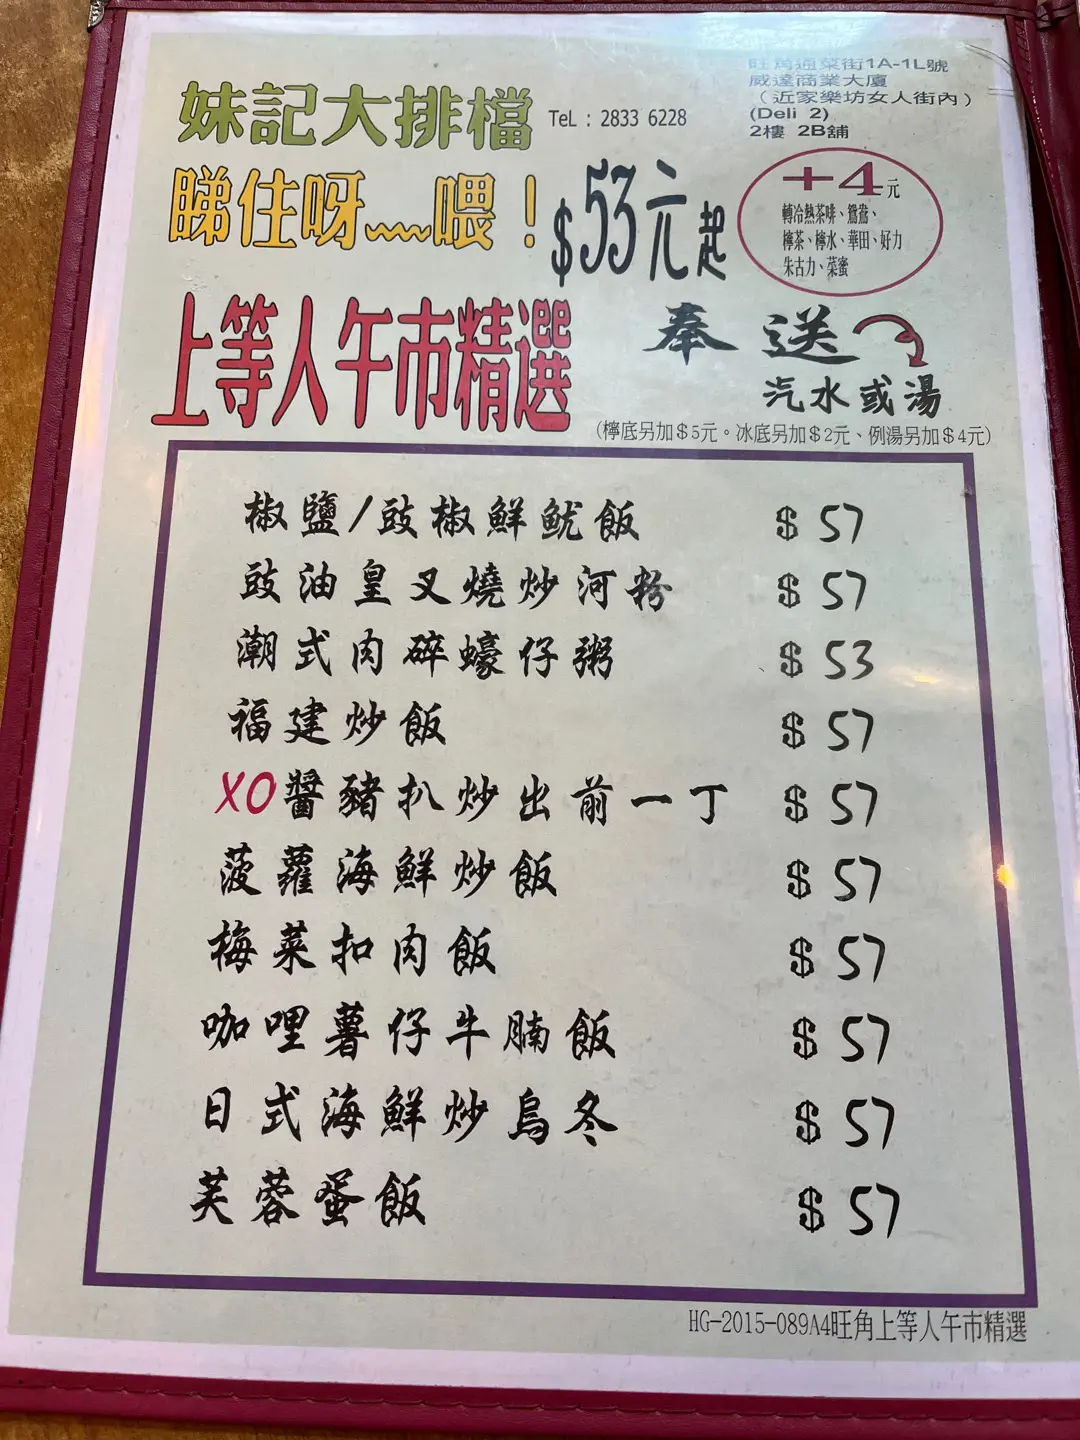 妹記大排檔 TeL : 2833 6228
旺角通菜街1A-1L號
威達商業大廈
(近家樂坊女人街內)
(Deli 2)
2樓 2B舖
睇住呀﹏喂！$53元起
+4元
轉冷熱茶啡、鴛鴦、
檸茶、檸水、華田、好力
朱古力、菜蜜
上等人午市精選
奉送
汽水或湯
(檸底另加$5元。冰底另加$2元、例湯另加$4元)
椒鹽/豉椒鮮魷飯 $57
豉油皇叉燒炒河粉 $57
潮式肉碎蠔仔粥 $53
福建炒飯 $57
XO醬豬扒炒出前一丁 $57
菠蘿海鮮炒飯 $57
梅菜扣肉飯 $57
咖哩薯仔牛腩飯 $57
日式海鮮炒烏冬 $57
芙蓉蛋飯 $57
HG-2015-089A4旺角上等人午市精選